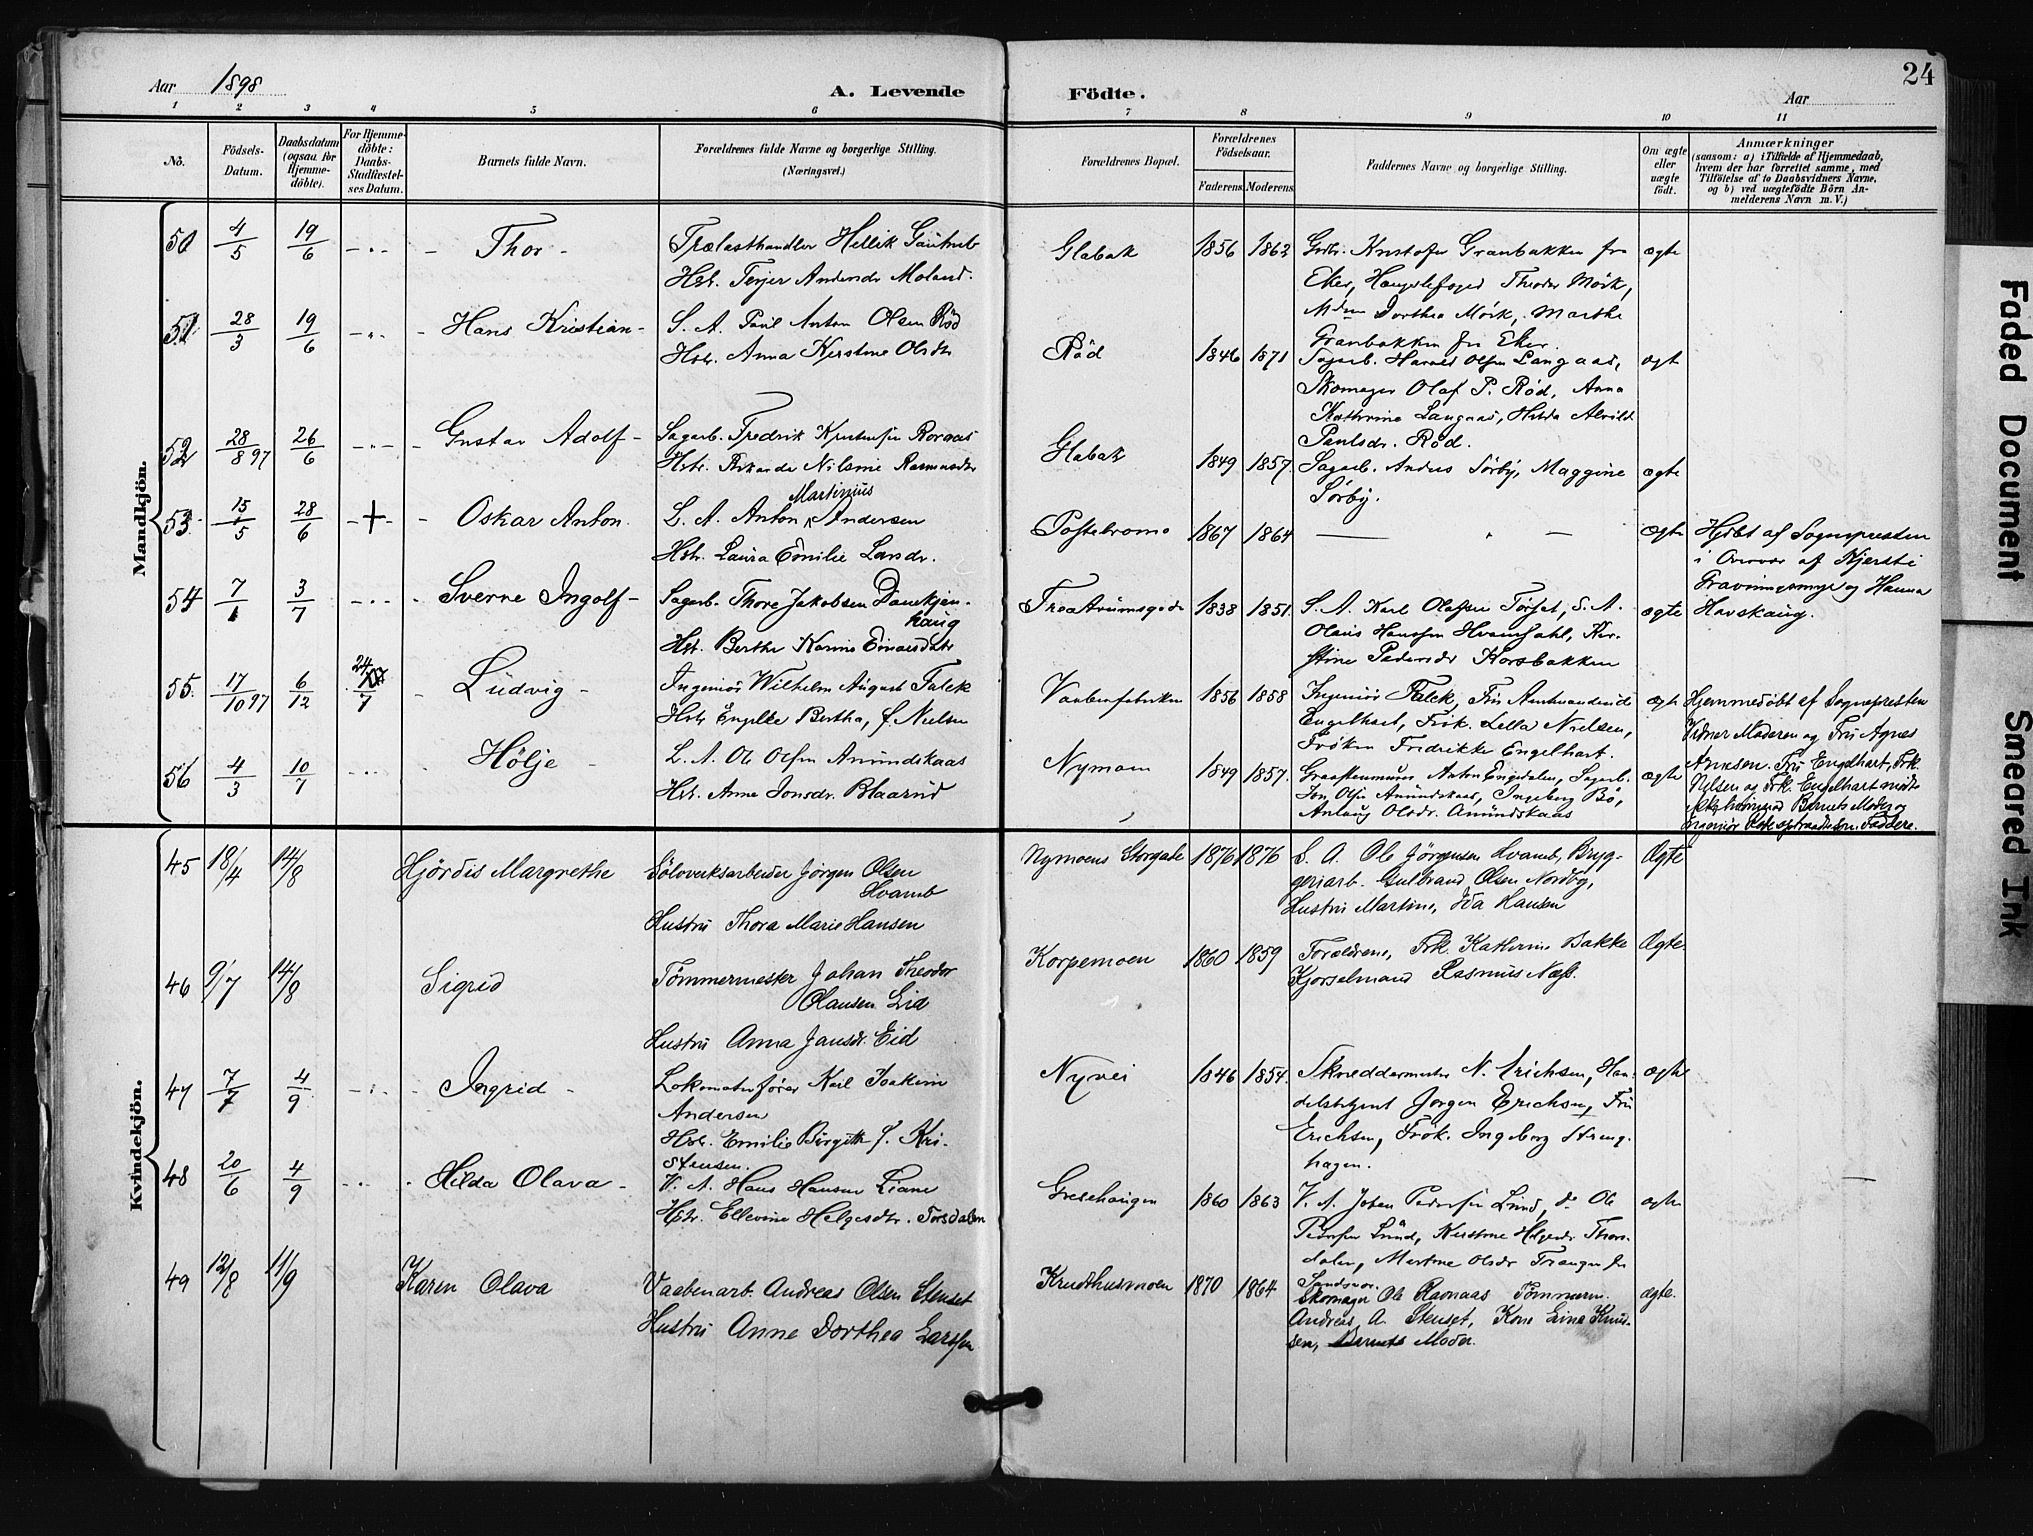 24
Aar 1898
A. Levende
Födte.
Aar
1 2 3 4 5 6 7 8 9 10 11
No.
Födsels-Datum.
Daabsdatum (ogsaa for Hjemme-döbte).
For Hjemme-döbte: Daabs-Stadfæstel-ses Datum.
Barnets fulde Navn.
Forældrenes fulde Navne og borgerlige Stilling. (Næringsvei.)
Forældrenes Bopæl.
Forældrenes Födselsaar.
Faderens. Moderens.
Faddernes Navne og borgerlige Stilling.
Om ægte eller uægte födt.
Anmærkninger
(saasom: a) i Tilfælde af Hjemmedaab,
hvem der har forrettet samme, med
Tilföielse af to Daabsvidners Navne,
og b) ved uægtefödte Börn An-
melderens Navn m. V.)
Mandkjön.
50 4/5 19/6 Thor Trælasthandler Hellik
Hst. Terjer Andersdr Moland.
Glabak 1856 1862 Granbakken fra ægte
Eker, Theodor Mörk,
Dorthea Mörk, Marthe
Granbakken fra Eker.
51 28/3 19/6 Hans Kristian S. A. Paul Anton Olsen Röd
Hstr. Anna Kirstine Olsdtr
Röd 1846 1871 Sagarb. Harald Olsen Langaas, ægt
Skomager Olaf P. Röd, Anna
Kathrine Langaas, Hilda Alvild
Paulsdr. Röd.
52 28/8 97 26/6 Gustav Adolf Sagarb. Fredrik
Hstr. Nilsine Rasmusdtr
Glabak 1849 1857 Sagarb. Anders Sörby, Maggine ægte
Sörby.
53 15/5 28/6 Oskar Anton. L. A. Anton Martinius Andersen
Hstr. Laura Emilie Larsdr.
1867 1864 ægte Hjdöbt af Sognepresten
i Overvær af Kjersti
og Hanna
Havskaug.
54 7/1 3/7 Sverre Ingolf Sagarb. Thore Jakobsen
haug
Hst. Berthe Karine Einarsdatr
1838 1851. S. A. Karl Olafsen S. A. ægte
Olaus Hanssen Hvamdahl, Ker-
stine Pedersdr Korsbakken
55. 17/10 97 6/12 24/7 Ludvig Ingeniör Wilhelm August Falck
Hstr Engelke Bertha, f. Nielsen
Vaabenfabriken 1856 1858 Ingeniör Falck, Fru
Engelhart, Frök. Lella Nielsen,
Fröken Fredrikke Engelhart.
ægte Hjemmedöbt af Sognepresten
Vidner Moderen og Fru Agnes
Arnesen. Fru Engelhart, Frk.
Nilsen og Frk. Engelhart
Barnets Moder og
56 4/3 10/7 Höljé L. A. Ole Olsen Amundskaas
Hst. Anne Jonsdr. Blaarud
Nymoen 1849 1857. Anton Engdalen, Sagarb. ægte
Jon Olsen Amundskaas, Ingeborg Bö,
Aslaug Olsdr. Amundskaas
Kvindekjön.
45 18/4 14/8 Hjördis Margrethe Sölvverksarbeider Jörgen Olsen
Hvamb
Hustru Thora Marie Hansen
Nymoens Storgade 1876 1876 S. A. Ole Jörgensen Hvamb, Bryg- Ægte
geriarb. Gulbrand Olsen Nordby,
Hustru Martine, Ida Hansen
46 9/7 14/8 Sigrid Tömmermester Johan Theodor
Olausen Eid
Hustru Anna Jansdr. Eid
Korpemoen 1860 1859 Forældrene, Frk. Kathrine Bakke Ægte
Kjörselmand Rasmus Næss.
47 7/7 4/9 Ingrid Lokomotivförer Karl Joakim
Andersen
Hstr. Emilie Birgitte f. Kri-
stensen.
Nyvei 1846 1854. Skreddermester N. Erichsen, Han- ægte
delsbetjent Jörgen Erichsen, Fru
Erichsen, Frök. Ingeborg Streng-
hagen.
48 20/6 4/9 Hilda Olava V. A. Hans Hansen Liane
Hstr. Ellevine Helgesdtr. Torsdalen
1860 1863 V. A. Johan Pedersen Lund, do Ole ægte
Pedersen Lund, Kirstine Helgesdr Thors-
dalen, Martine Olsdr
Sandsvær.
49 12/8 11/9 Karen Olava Vaabenarb. Andreas Olsen Stenset
Hustru Anne Dorthea Larssen
Kruthusmoen 1870 1864 Skomager Ole Ravnaas Tömmerm. ægte.
Andreas A. Stenset, Kone Lina Knud-
sen, Barnets Moder.
Faded Document
Smeared Ink